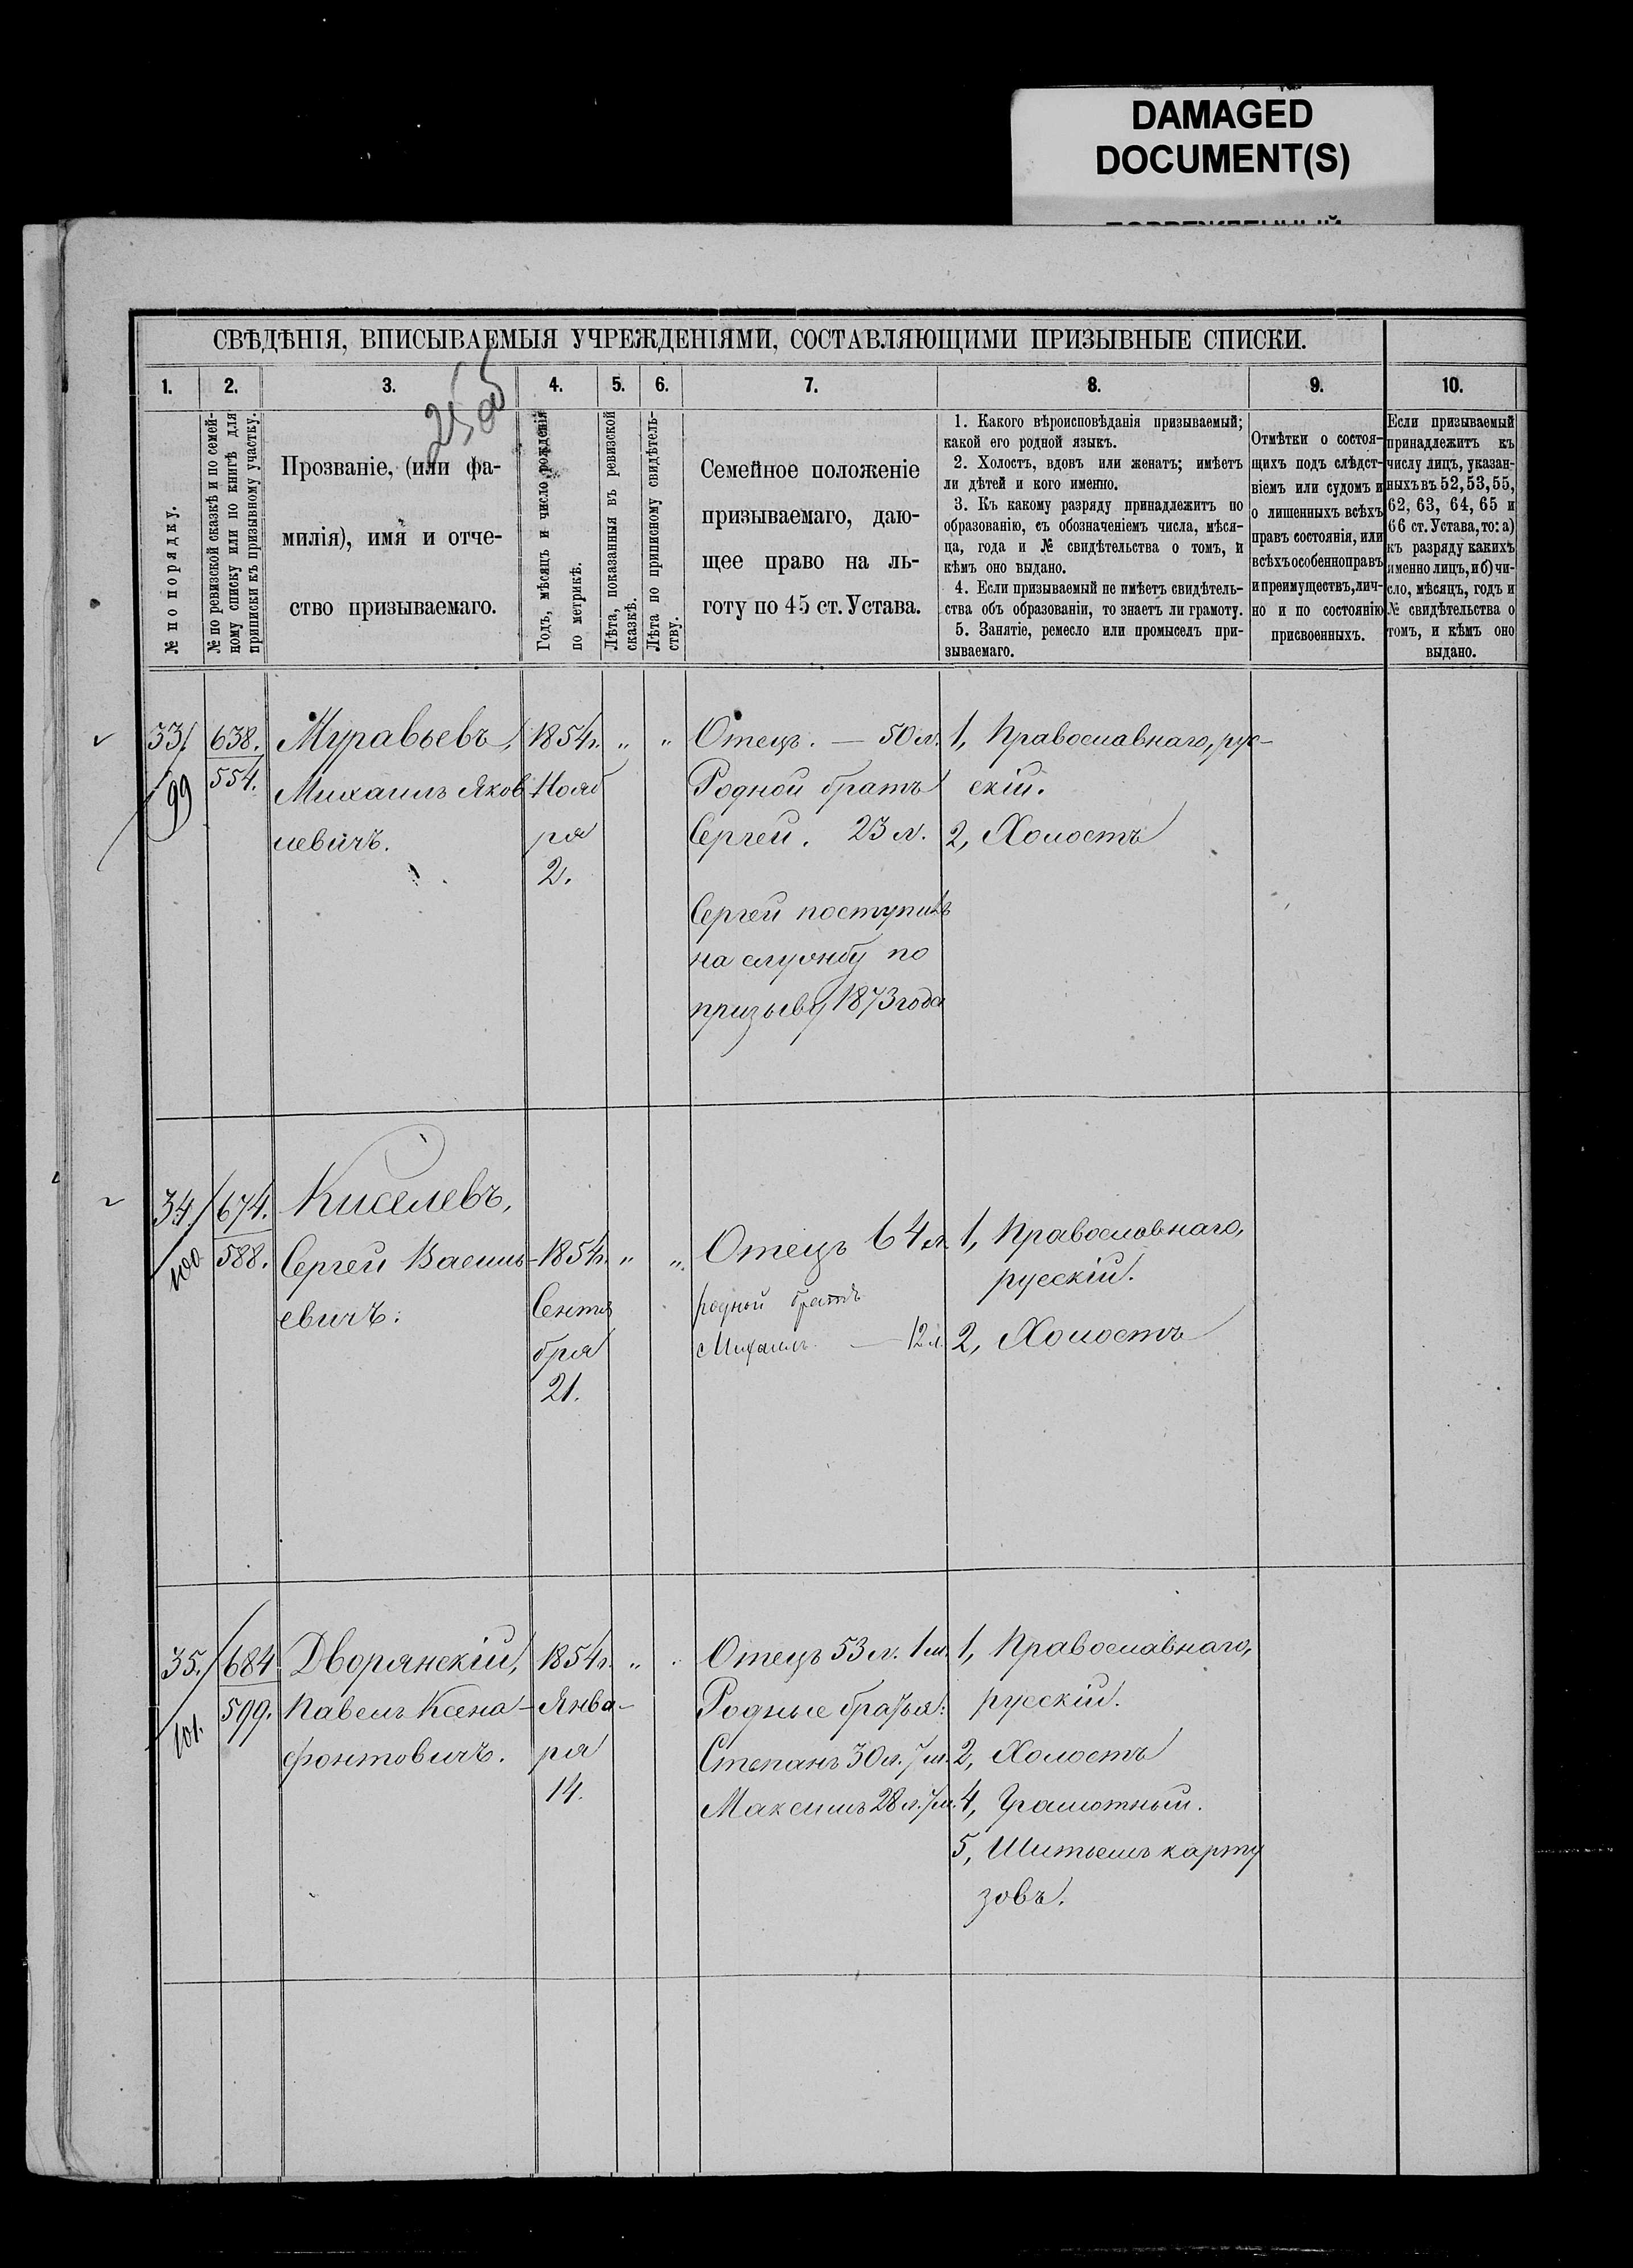 DAMAGED
DOCUMENT(S)
СВѢДѢНІЯ, ВПИСЫВАЕМЫЯ УЧРЕЖДЕНІЯМИ, СОСТАВЛЯЮЩИМИ ПРИЗЫВНЫЕ СПИСКИ.
1. 2. 3. 4. 5. 6. 7. 8. 9. 10.
№ по порядку.
№ по ревизской сказкѣ и по семей-
ному списку или по книгѣ для
приписки къ призывному участку.
Прозваніе, (или фа-
милія), имя и отче-
ство призываемаго.
Годъ, мѣсяцъ и число рожденія
по метрикѣ.
Лѣта, показанныя въ ревизской
сказкѣ.
Лѣта по приписному свидѣтель-
ству.
Семейное положеніе
призываемаго, даю-
щее право на ль-
готу по 45 ст. Устава.
1. Какого вѣроисповѣданія призываемый;
какой его родной языкъ.
2. Холостъ, вдовъ или женатъ; имѣетъ
ли дѣтей и кого именно.
3. Къ какому разряду принадлежитъ по
образованію, съ обозначеніемъ числа, мѣся-
ца, года и № свидѣтельства о томъ, и
кѣмъ оно выдано.
4. Если призываемый не имѣетъ свидѣтель-
ства объ образованіи, то знаетъ ли грамоту.
5. Занятіе, ремесло или промыселъ при-
зываемаго.
Отмѣтки о состоя-
щихъ подъ слѣдст-
віемъ или судомъ и
о лишенныхъ всѣхъ
правъ состоянія, или
всѣхъ особенно правъ
и преимуществъ, лич-
но и по состоянію
присвоенныхъ.
Если призываемый
принадлежитъ къ
числу лицъ, указан-
ныхъ въ 52, 53, 55,
62, 63, 64, 65 и
66 ст. Устава, то: а)
къ разряду какихъ
именно лицъ, и б) чи-
сло, мѣсяцъ, годъ и
№ свидѣтельства о
томъ, и кѣмъ оно
выдано.
33/ 638. Муравьевъ, 1854г. „ „ Отецъ. — 50 л. 1, Православнаго, рус-
99 554. Михаилъ Яков Нояб Родной братъ скій.
левичъ. ря Сергей. 23 л. 2, Холостъ
2.
Сергей поступилъ
на службу по
призыву 1873 года
34./ 674. Киселевъ,
100 588. Сергей Василь- 1854г. „ „ Отецъ 64 л. 1, Православнаго,
евичъ. Сентя родной братъ русскій.
бря Михаилъ — 12 л. 2, Холостъ
21.
35./ 684 Дворянскій, 1854г. „ Отецъ 53 л. 1 м. 1, Православнаго,
101. 599. Павелъ Ксено- Янва- Родные братья: русскій.
фонтовичъ. ря Степанъ 30 л. 7 м. 2, Холостъ
14. Максимъ 28 л. 7 м. 4, Грамотный.
5, Шитьемъ карту
зовъ.